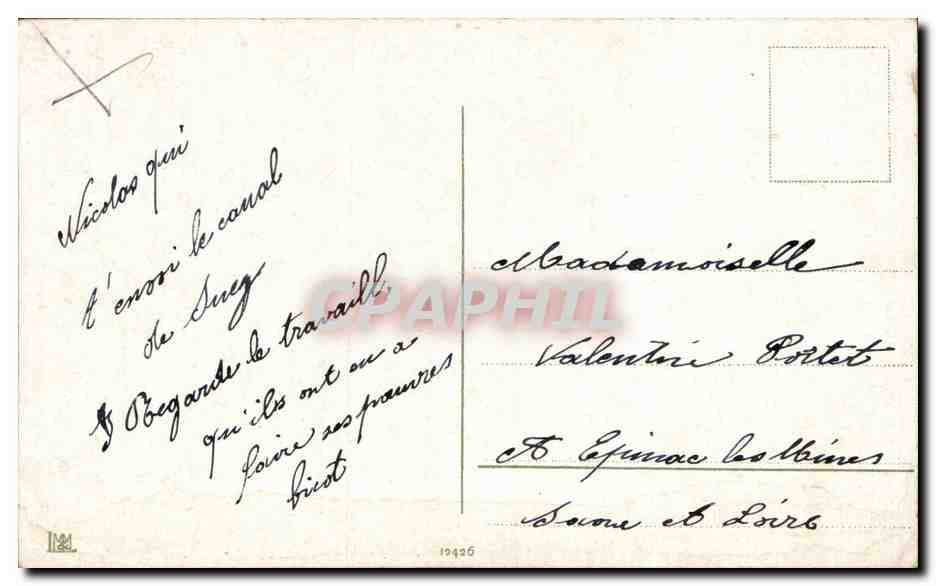 Nicolas qui
t'envoi le canal
de Suez
Regarde le travaill
qu'ils ont eu a
faire ses pauvres
bicot
CPAPHIL
Mademoiselle
Valentine Portet
A Epinac les Mines
Saone et Loire
12426